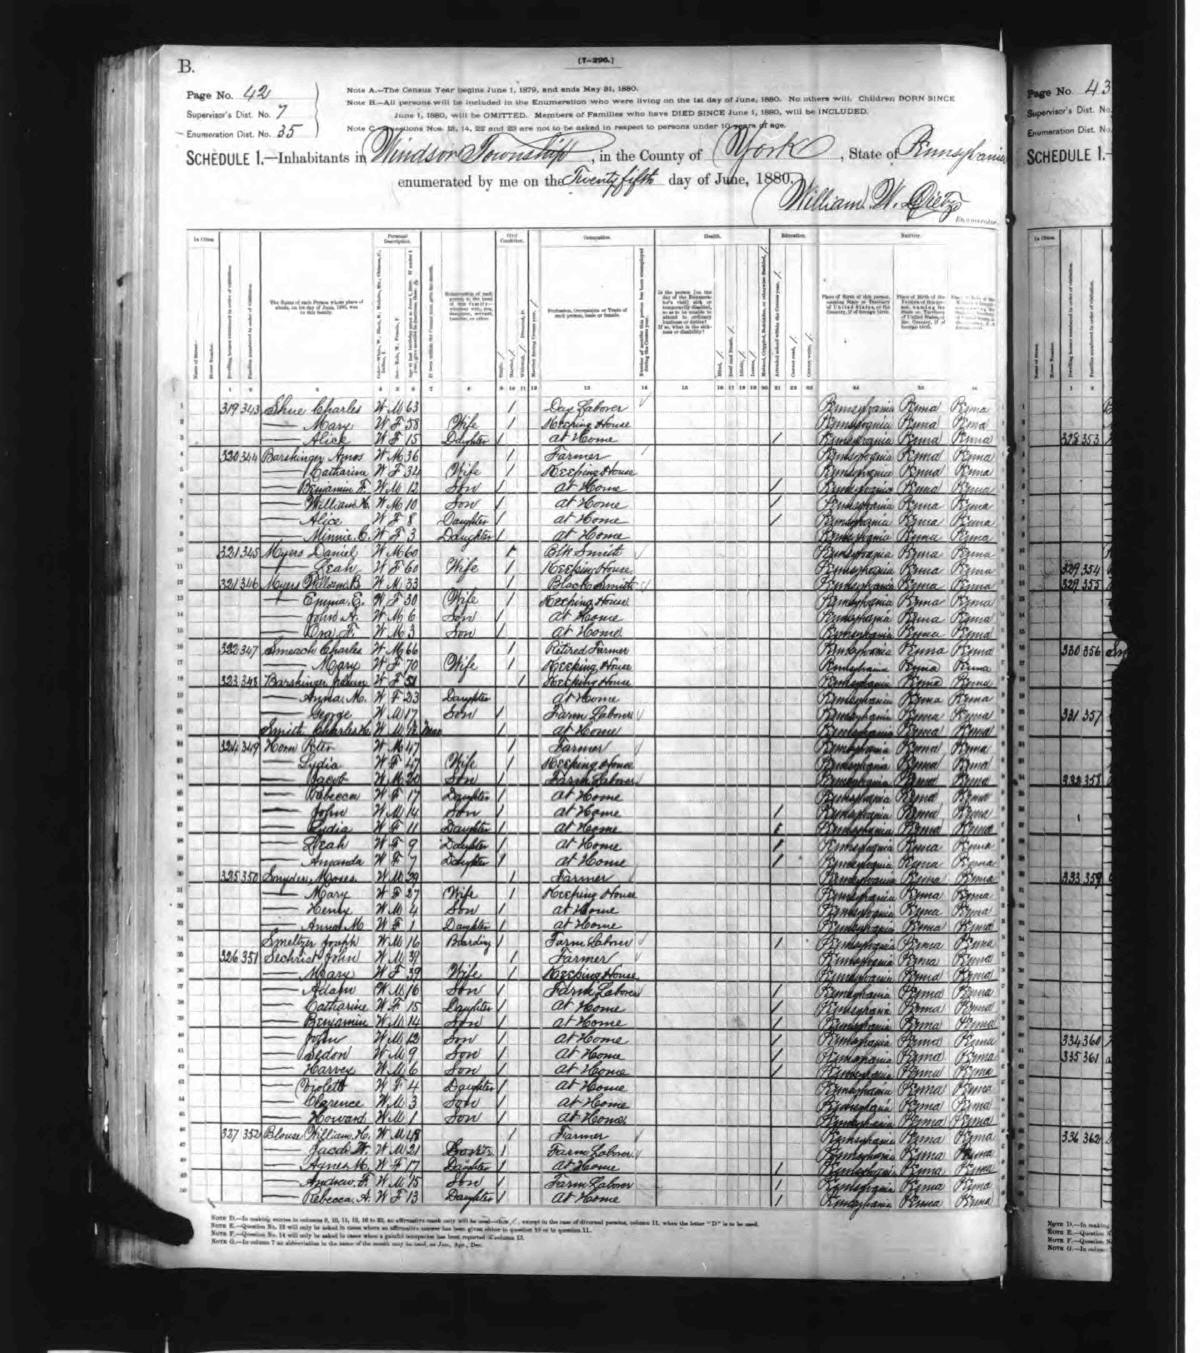 B.
[7-296.]
Page No. 42
Supervisor's Dist. No. 7
Enumeration Dist. No. 35
Note A.—The Census Year begins June 1, 1879, and ends May 31, 1880.
Note B.—All persons will be included in the Enumeration who were living on the 1st day of June, 1880. No others will. Children BORN SINCE
June 1, 1880, will be OMITTED. Members of Families who have DIED SINCE June 1, 1880, will be INCLUDED.
Note C.—Questions Nos. 13, 14, 22 and 23 are not to be asked in respect to persons under 10 years of age.
SCHEDULE 1.—Inhabitants in Windsor Township, in the County of York, State of Pennsylvania
enumerated by me on the Twenty fifth day of June, 1880.
William W. Dietz
Enumerator.
319 343 Shue Charles W M 63 / Day Laborer Pennsylvania Penna Penna
— Mary W F 58 Wife / Keeping House Pennsylvania Penna Penna
— Alice W F 15 Daughter / at Home / Pennsylvania Penna Penna
320 344 Barshinger Amos W M 36 / Farmer Pennsylvania Penna Penna
— Catharine W F 34 Wife / Keeping House Pennsylvania Penna Penna
— Benjamin F. W M 12 Son / at Home / Pennsylvania Penna Penna
— William H. W M 10 Son / at Home / Pennsylvania Penna Penna
— Alice W F 8 Daughter / at Home / Pennsylvania Penna Penna
— Minnie C. W F 3 Daughter / at Home Pennsylvania Penna Penna
321 345 Myers Daniel W M 60 / Blk Smith Pennsylvania Penna Penna
— Leah W F 60 Wife / Keeping House Pennsylvania Penna Penna
321 346 Myers William B. W M 33 / Black Smith Pennsylvania Penna Penna
— Emma E. W F 30 Wife / Keeping House Pennsylvania Penna Penna
— John A. W M 6 Son / at Home Pennsylvania Penna Penna
— Ora F. W M 3 Son / at Home Pennsylvania Penna Penna
322 347 Smeach Charles W M 66 / Retired Farmer Pennsylvania Penna Penna
— Mary W F 70 Wife / Keeping House Pennsylvania Penna Penna
323 348 Barshinger W F 51 / Keeping House Pennsylvania Penna Penna
— Anna M. W F 23 Daughter / at Home Pennsylvania Penna Penna
— George W M 17 Son / Farm Laborer Pennsylvania Penna Penna
Smith Charles H. W M / at Home Pennsylvania Penna Penna
324 349 Horn Peter W M 47 / Farmer Pennsylvania Penna Penna
— Lydia W F 47 Wife / Keeping House Pennsylvania Penna Penna
— Jacob W M 20 Son / Farm Laborer Pennsylvania Penna Penna
— Rebecca W F 17 Daughter / at Home Pennsylvania Penna Penna
— John W M 14 Son / at Home / Pennsylvania Penna Penna
— Lydia W F 11 Daughter / at Home / Pennsylvania Penna Penna
— Leah W F 9 Daughter / at Home / Pennsylvania Penna Penna
— Amanda W F 7 Daughter / at Home / Pennsylvania Penna Penna
325 350 Snyder Moses W M 29 / Farmer Pennsylvania Penna Penna
— Mary W F 27 Wife / Keeping House Pennsylvania Penna Penna
— Henry W M 4 Son / at Home Pennsylvania Penna Penna
— Anna M W F 1 Daughter / at Home Pennsylvania Penna Penna
Smeltzer Joseph W M 16 Boarding / Farm Laborer / Pennsylvania Penna Penna
326 351 Sechrist John W M 39 / Farmer Pennsylvania Penna Penna
— Mary W F 39 Wife / Keeping House Pennsylvania Penna Penna
— Adam W M 16 Son / Farm Laborer / Pennsylvania Penna Penna
— Catharine W F 15 Daughter / at Home / Pennsylvania Penna Penna
— Benjamin W M 14 Son / at Home / Pennsylvania Penna Penna
— John W M 12 Son / at Home / Pennsylvania Penna Penna
— Sedon W M 9 Son / at Home / Pennsylvania Penna Penna
— Harvey W M 6 Son / at Home / Pennsylvania Penna Penna
— Violett W F 4 Daughter / at Home Pennsylvania Penna Penna
— Clarence W M 3 Son / at Home Pennsylvania Penna Penna
— Howard W M 1 Son / at Home Pennsylvania Penna Penna
327 352 Blouse William H. W M 48 / Farmer Pennsylvania Penna Penna
— Jacob W. W M 21 Son / Farm Laborer Pennsylvania Penna Penna
— Agnes M. W F 17 Daughter / at Home / Pennsylvania Penna Penna
— Andrew F. W M 15 Son / Farm Laborer / Pennsylvania Penna Penna
— Rebecca A. W F 13 Daughter / at Home / Pennsylvania Penna Penna
Note D.—In making entries in columns 9, 10, 11, 12, 16 to 23, an affirmative mark only will be used—thus /, except in the case of divorced persons, column 11, when the letter "D" is to be used.
Note E.—Question No. 12 will only be asked in cases where an affirmative answer has been given either to question 10 or to question 11.
Note F.—Question No. 14 will only be asked in cases when a gainful occupation has been reported in column 13.
Note G.—In column 7 an abbreviation in the name of the month may be used, as Jan., Apr., Dec.
Page No. 43
Supervisor's Dist. No.
Enumeration Dist. No.
SCHEDULE 1.—
328 353
329 354
329 355
330 356
331 357
332 358
333 359
334 360
335 361
336 362
Note D.—In making
Note E.—Question N
Note F.—Question N
Note G.—In column